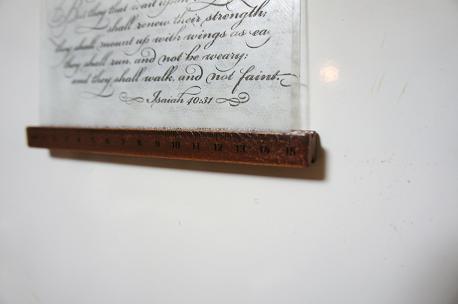 But they that wait upon
shall renew their strength;
they shall mount up with wings as ea
they shall run, and not be weary;
and they shall walk, and not faint.
Isaiah 40:31
5 6 7 8 9 10 11 12 13 14 15